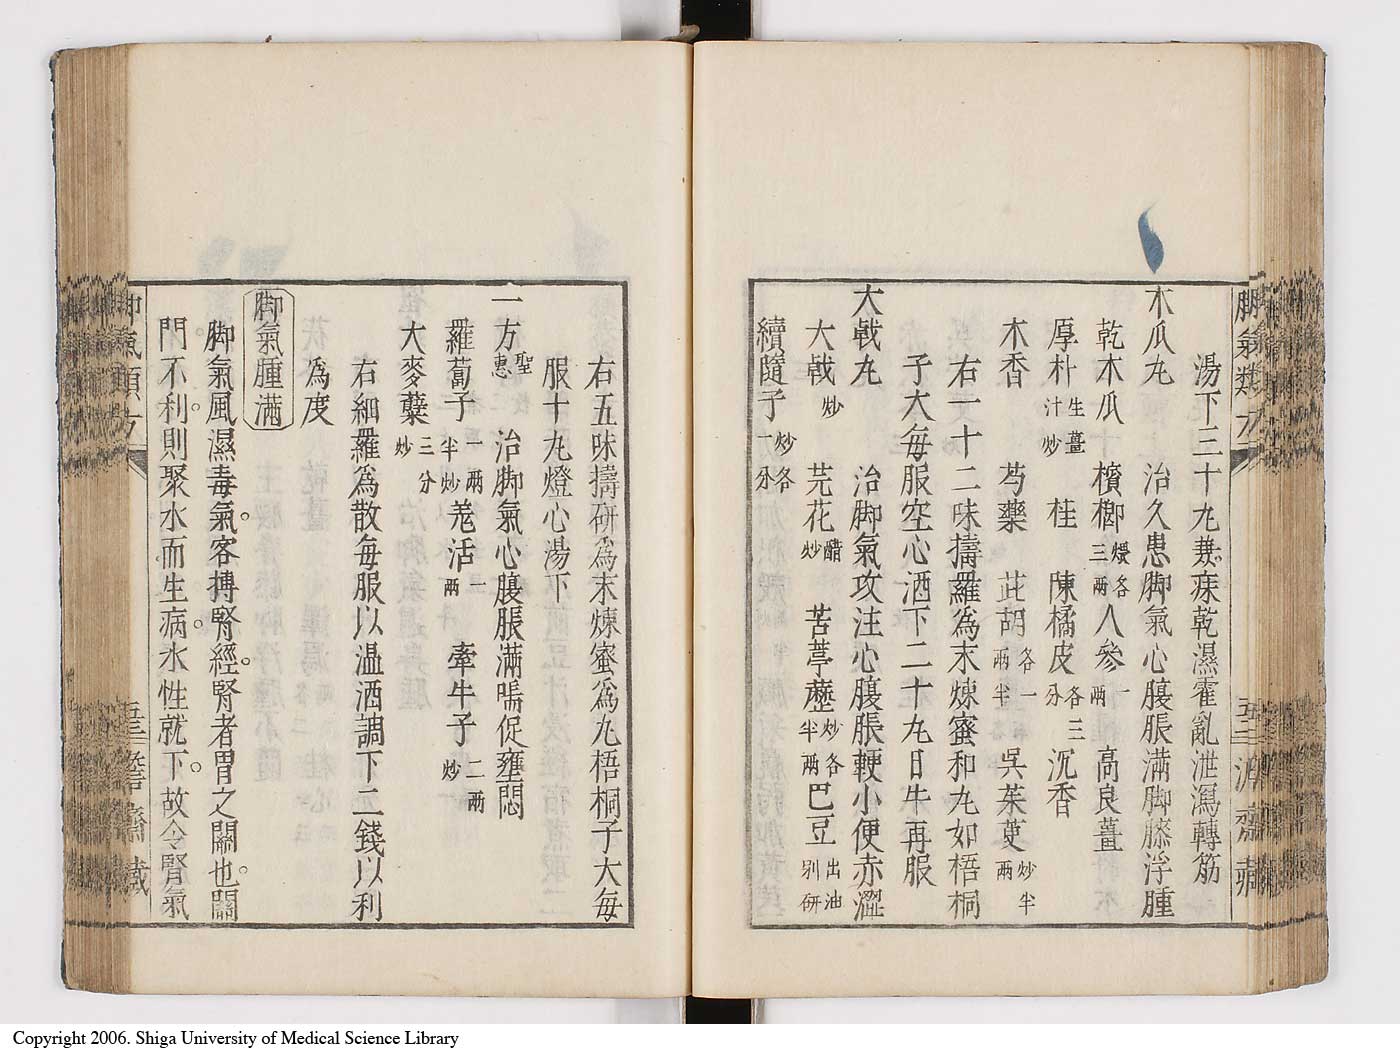 湯下三十丸兼療乾濕霍亂泄瀉轉筋
木瓜丸　治久患脚氣心腹脹滿脚膝浮腫
乾木瓜　檳榔煨各三兩　人參一兩　高良薑
厚朴生薑汁炒　桂　陳橘皮各三分　沉香
木香　芍藥　茈胡各一兩半　吳茱萸炒半兩
右一十二味擣羅為末煉蜜和丸如梧桐
子大每服空心酒下二十丸日午再服
大戟丸　治脚氣攻注心腹脹鞕小便赤澀
大戟炒　芫花醋炒　苦葶藶炒各半兩　巴豆出油別研
續隨子炒各一分
右五味擣研為末煉蜜為丸梧桐子大每
服十丸燈心湯下
一方聖惠　治脚氣心腹脹滿喘促壅悶
羅蔔子一兩半炒　羗活一兩　牽牛子二兩炒
大麥蘖三分炒
右細羅為散每服以温酒調下二錢以利
為度
脚氣腫滿
脚氣風濕毒氣客搏腎經腎者胃之關也關
門不利則聚水而生病水性就下故令腎氣
脚氣類方
Copyright 2006. Shiga University of Medical Science Library